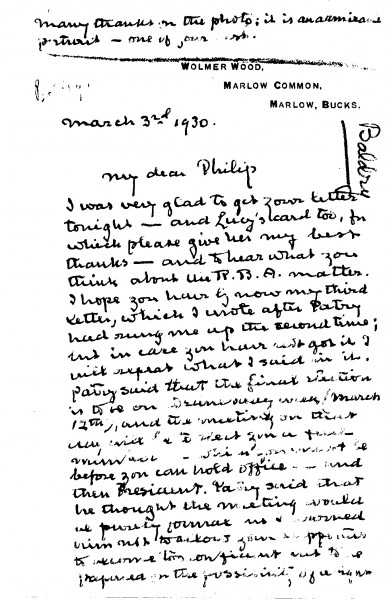 many thanks for the photo; it is an admirable
portrait — one of your best.
WOLMER WOOD,
MARLOW COMMON,
MARLOW, BUCKS.
March 3rd 1930.
Baldry
My dear Philip
I was very glad to get your letter
tonight — and Lucy's card too, for
which please give her my best
thanks — and to hear what you
think about the R.B.A. matter.
I hope you have by now my third
letter, which I wrote after Patry
had rung me up the second time;
but in case you have not got it I
will repeat what I said in it.
Patry said that the final election
is to be on Wednesday week, March
12th, and the meeting on that
day will be to elect you a
member — must be
before you can hold office — and
then President. Patry said that
he thought the meeting would
be purely formal but I warned
him not to allow your supporters
to become too confident but to be
prepared for the possibility of a